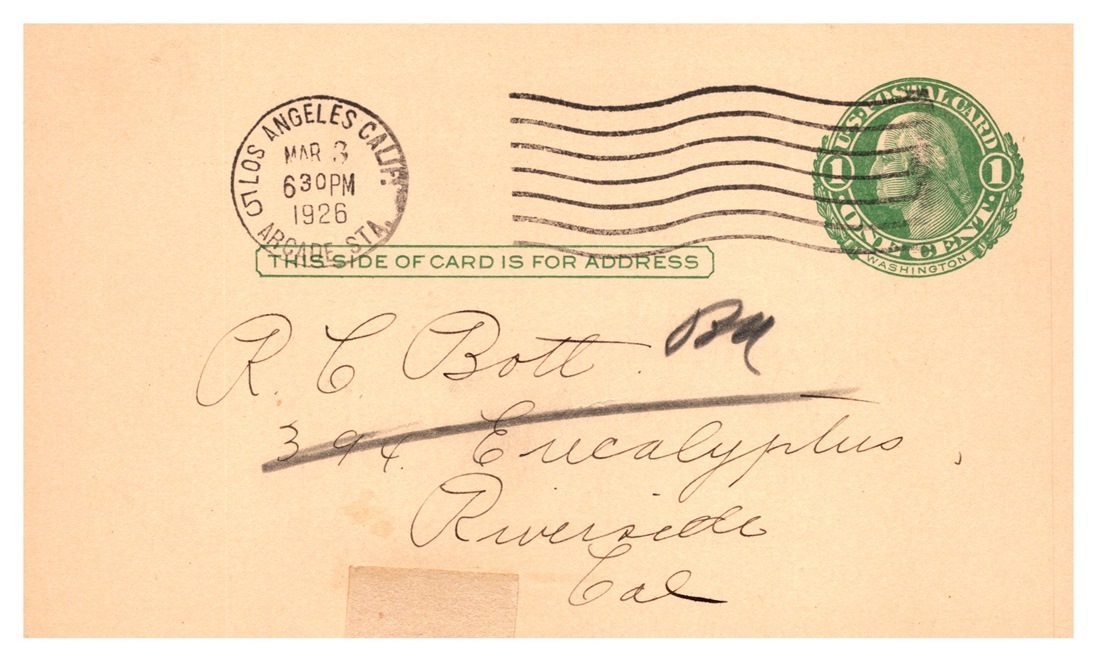 LOS ANGELES CALIF.
MAR 3
6 30 PM
1926
5 ARCADE STA.
U.S. POSTAL CARD
1 1
ONE CENT
WASHINGTON
THIS SIDE OF CARD IS FOR ADDRESS
R. C. Bott.
394. Eucalyptus,
Riverside
Cal